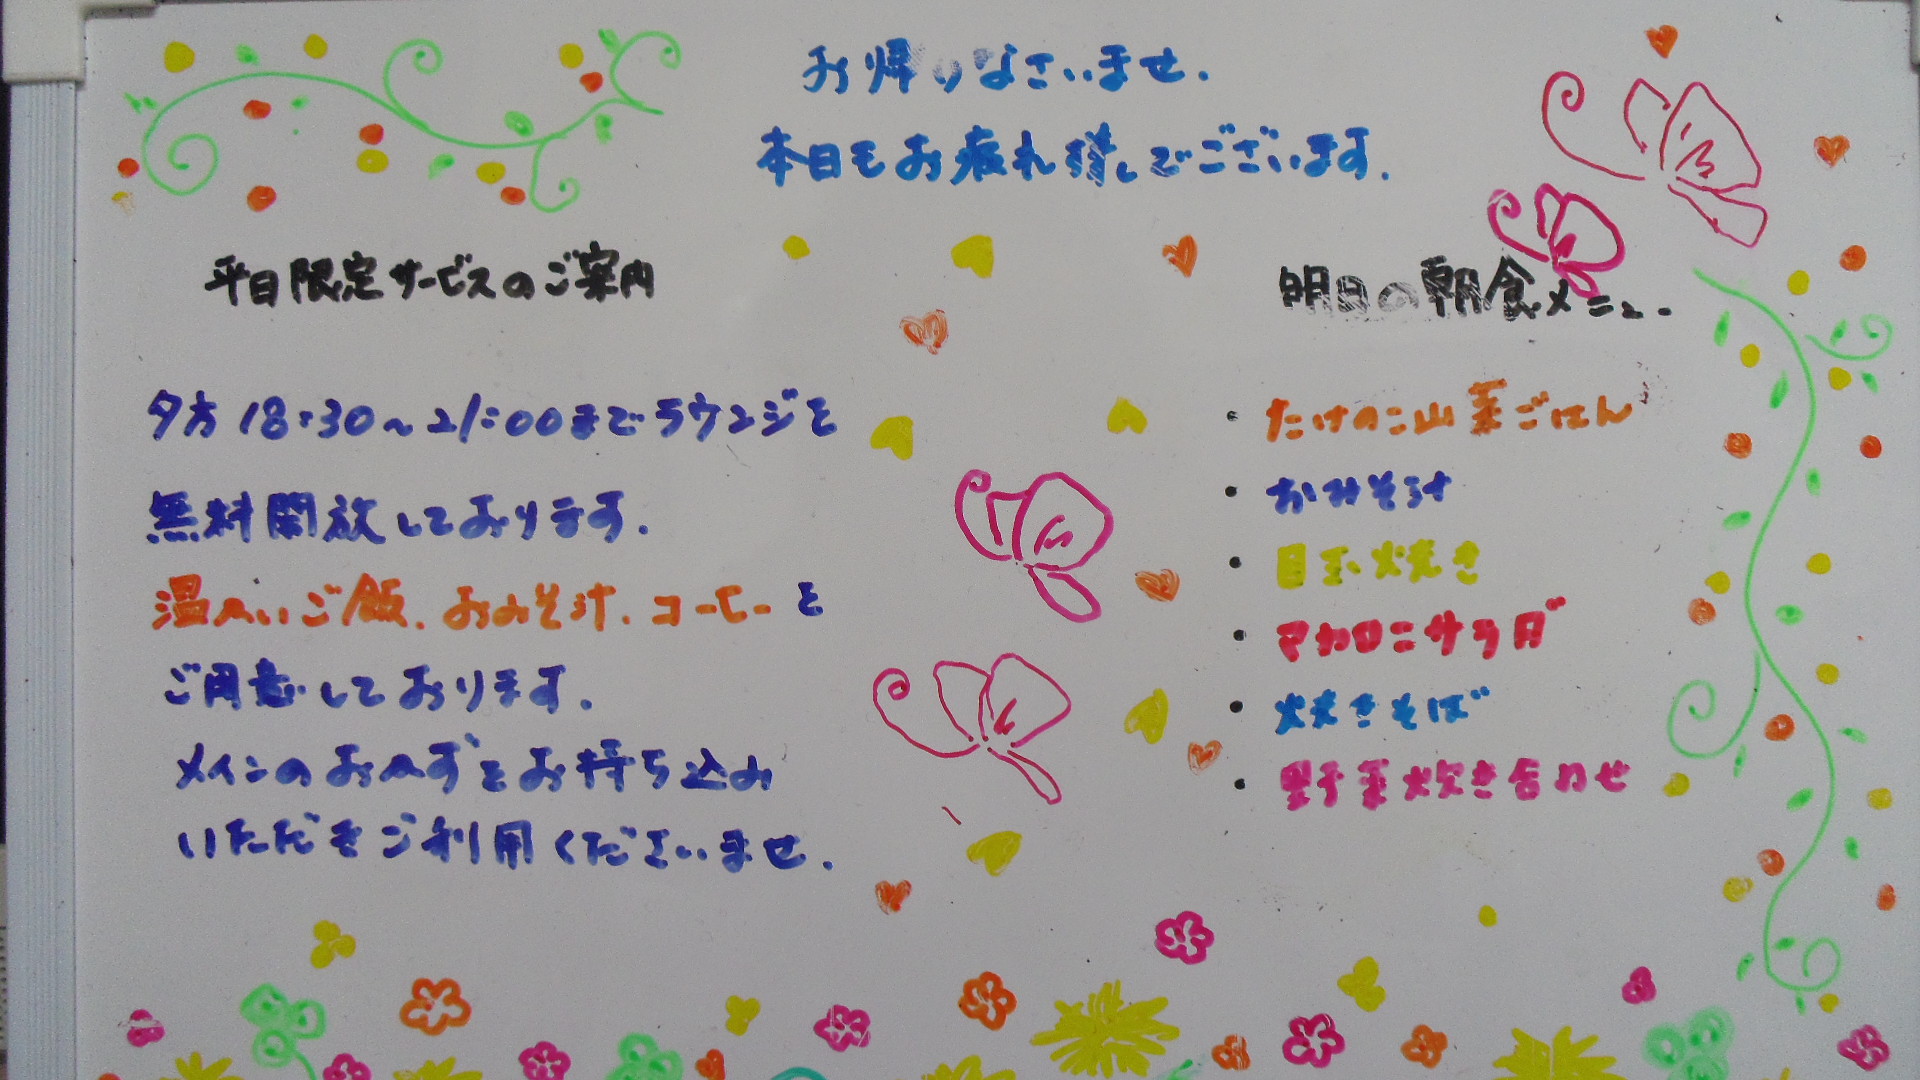 お帰りなさいませ.
本日もお疲れ様でございます.
平日限定サービスのご案内
夕方18:30～21:00までラウンジを
無料開放しております.
温かいご飯.おみそ汁.コーヒーを
ご用意しております.
メインのおかずをお持ち込み
いただきご利用くださいませ.
明日の朝食メニュー
・たけのこ山菜ごはん
・おみそ汁
・目玉焼き
・マカロニサラダ
・焼きそば
・野菜炊き合わせ